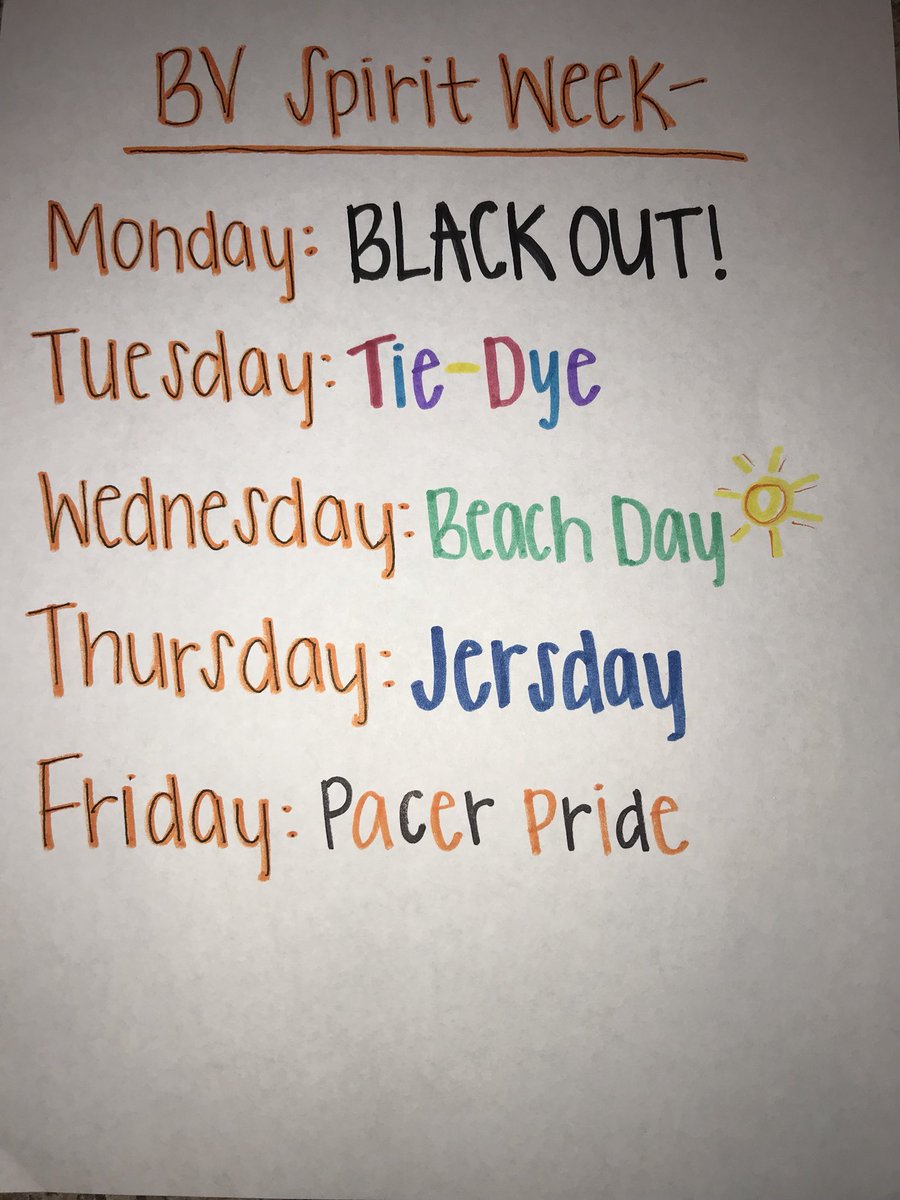 BV Spirit Week-
Monday: BLACK OUT!
Tuesday: Tie-Dye
Wednesday: Beach Day
Thursday: Jersday
Friday: Pacer Pride